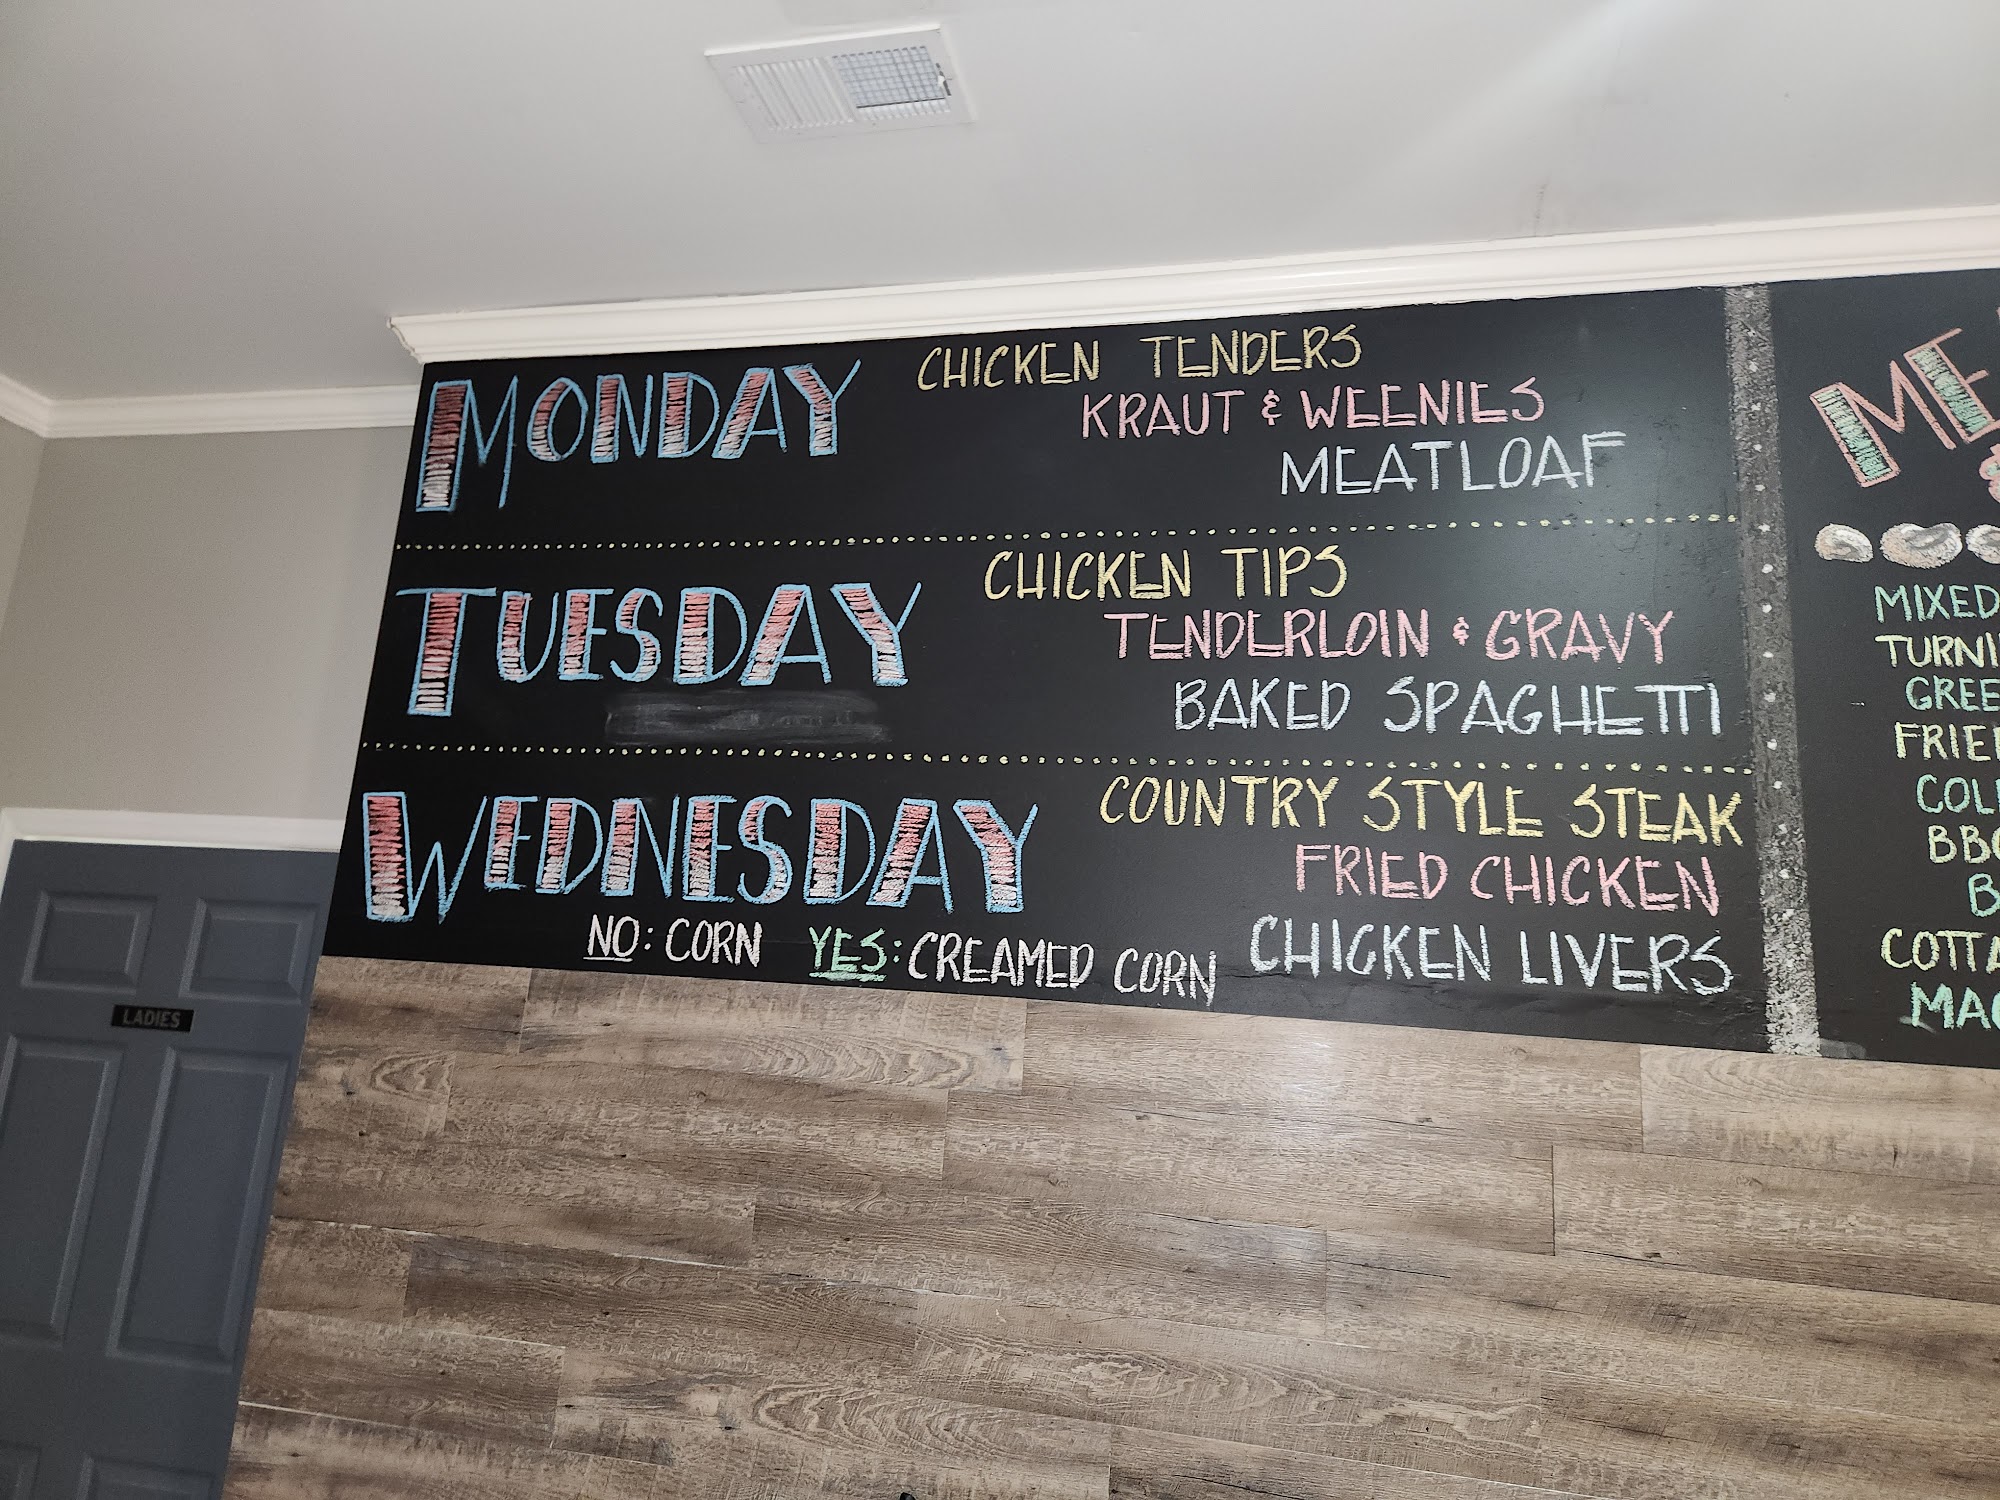 MONDAY
CHICKEN TENDERS
KRAUT & WEENIES
MEATLOAF
TUESDAY
CHICKEN TIPS
TENDERLOIN & GRAVY
BAKED SPAGHETTI
WEDNESDAY
COUNTRY STYLE STEAK
FRIED CHICKEN
CHICKEN LIVERS
NO: CORN YES: CREAMED CORN
MIXED
BBQ
LADIES